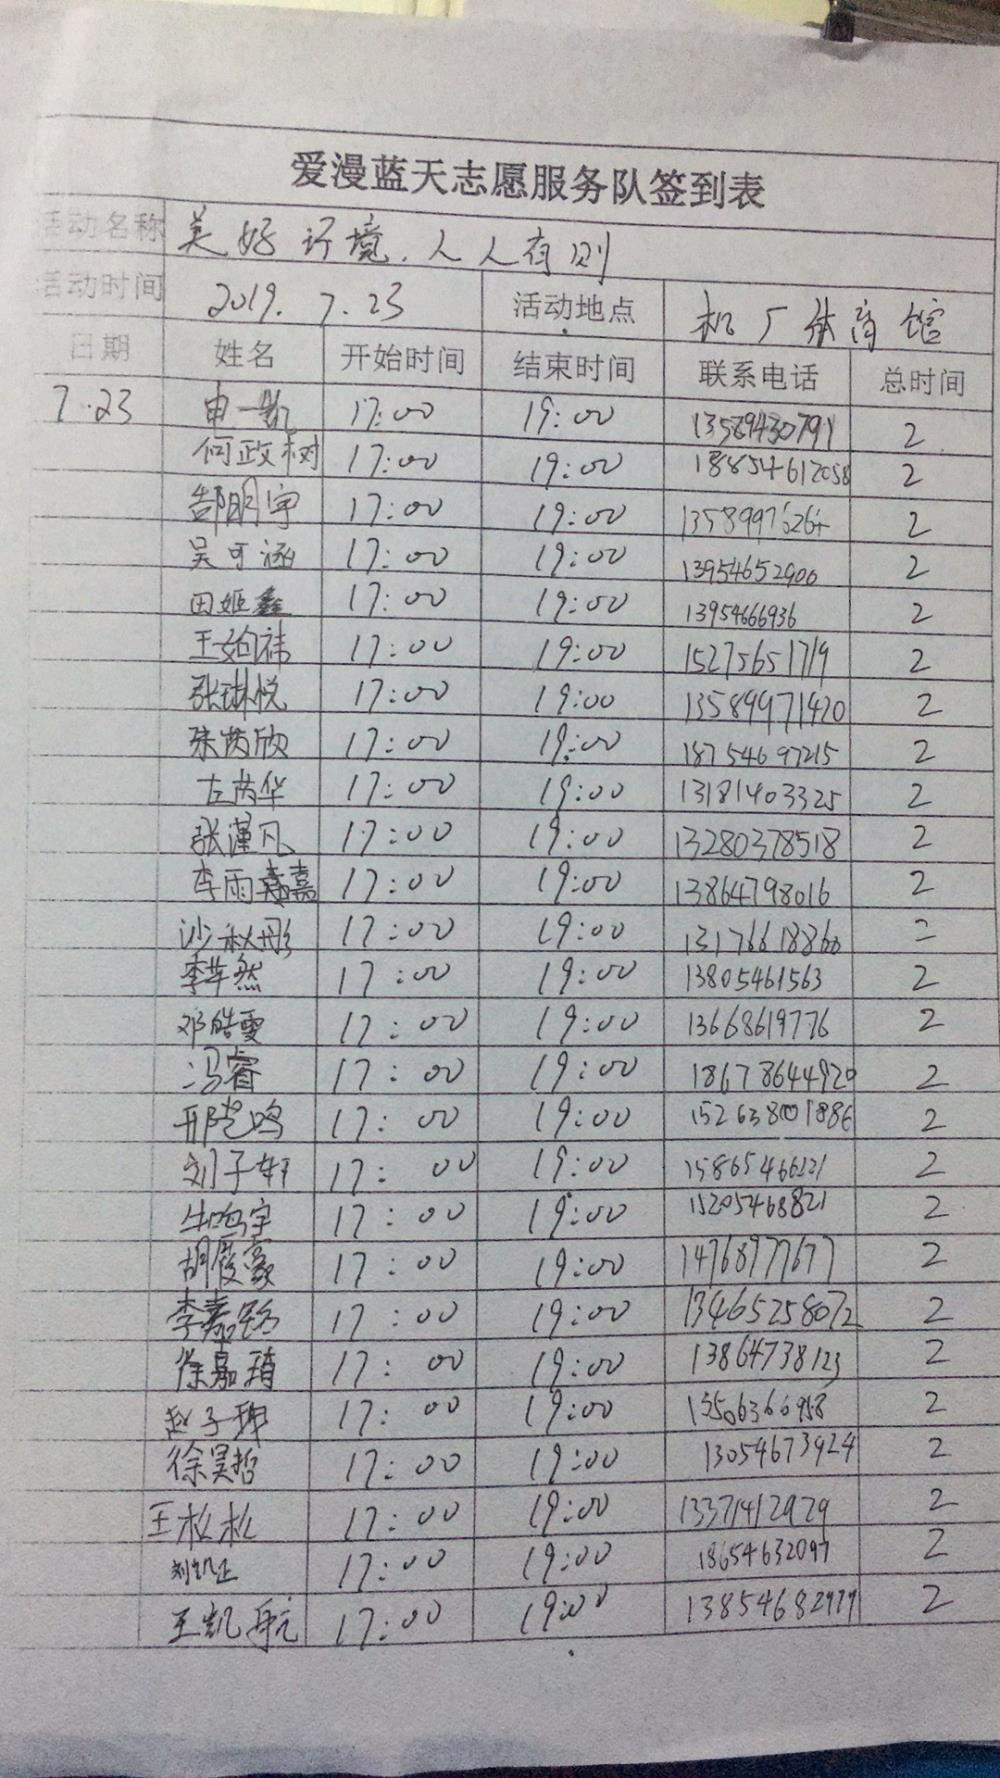 爱漫蓝天志愿服务队签到表
活动名称 美好环境.人人有则
活动时间 2019.7.23 活动地点 机厂体育馆
日期 姓名 开始时间 结束时间 联系电话 总时间
7.23 申一凯 17:00 19:00 13589430791 2
何政树 17:00 19:00 18854612058 2
郜明宇 17:00 19:00 2
吴可涵 17:00 19:00 13954652906 2
田姬鑫 17:00 19:00 13954666936 2
17:00 19:00 15275651719 2
张琳悦 17:00 19:00 13589971420 2
张芮欣 17:00 19:00 18754697215 2
左芮华 17:00 19:00 13181403325 2
张谨凡 17:00 19:00 13280378518 2
李雨嘉 17:00 19:00 13864798016 2
沙秋彤 17:00 19:00 13176618860 2
李芊然 17:00 19:00 13805461563 2
邓皓雯 17:00 19:00 13668619776 2
冯睿 17:00 19:00 18678644920 2
17:00 19:00 2
刘子轩 17:00 19:00 15865466121 2
牛鸣宇 17:00 19:00 15205468821 2
17:00 19:00 14768977677 2
李嘉路 17:00 19:00 13465258072 2
徐嘉琦 17:00 19:00 13864738123 2
赵子琳 17:00 19:00 13506366958 2
徐昊哲 17:00 19:00 13054673924 2
王松松 17:00 19:00 13371412929 2
17:00 19:00 18654632097 2
王凯航 17:00 19:00 13854682979 2